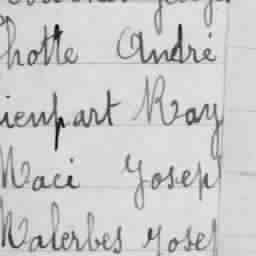 hotte André
ienpart Ray
Maci Josep
Malerbes Josep